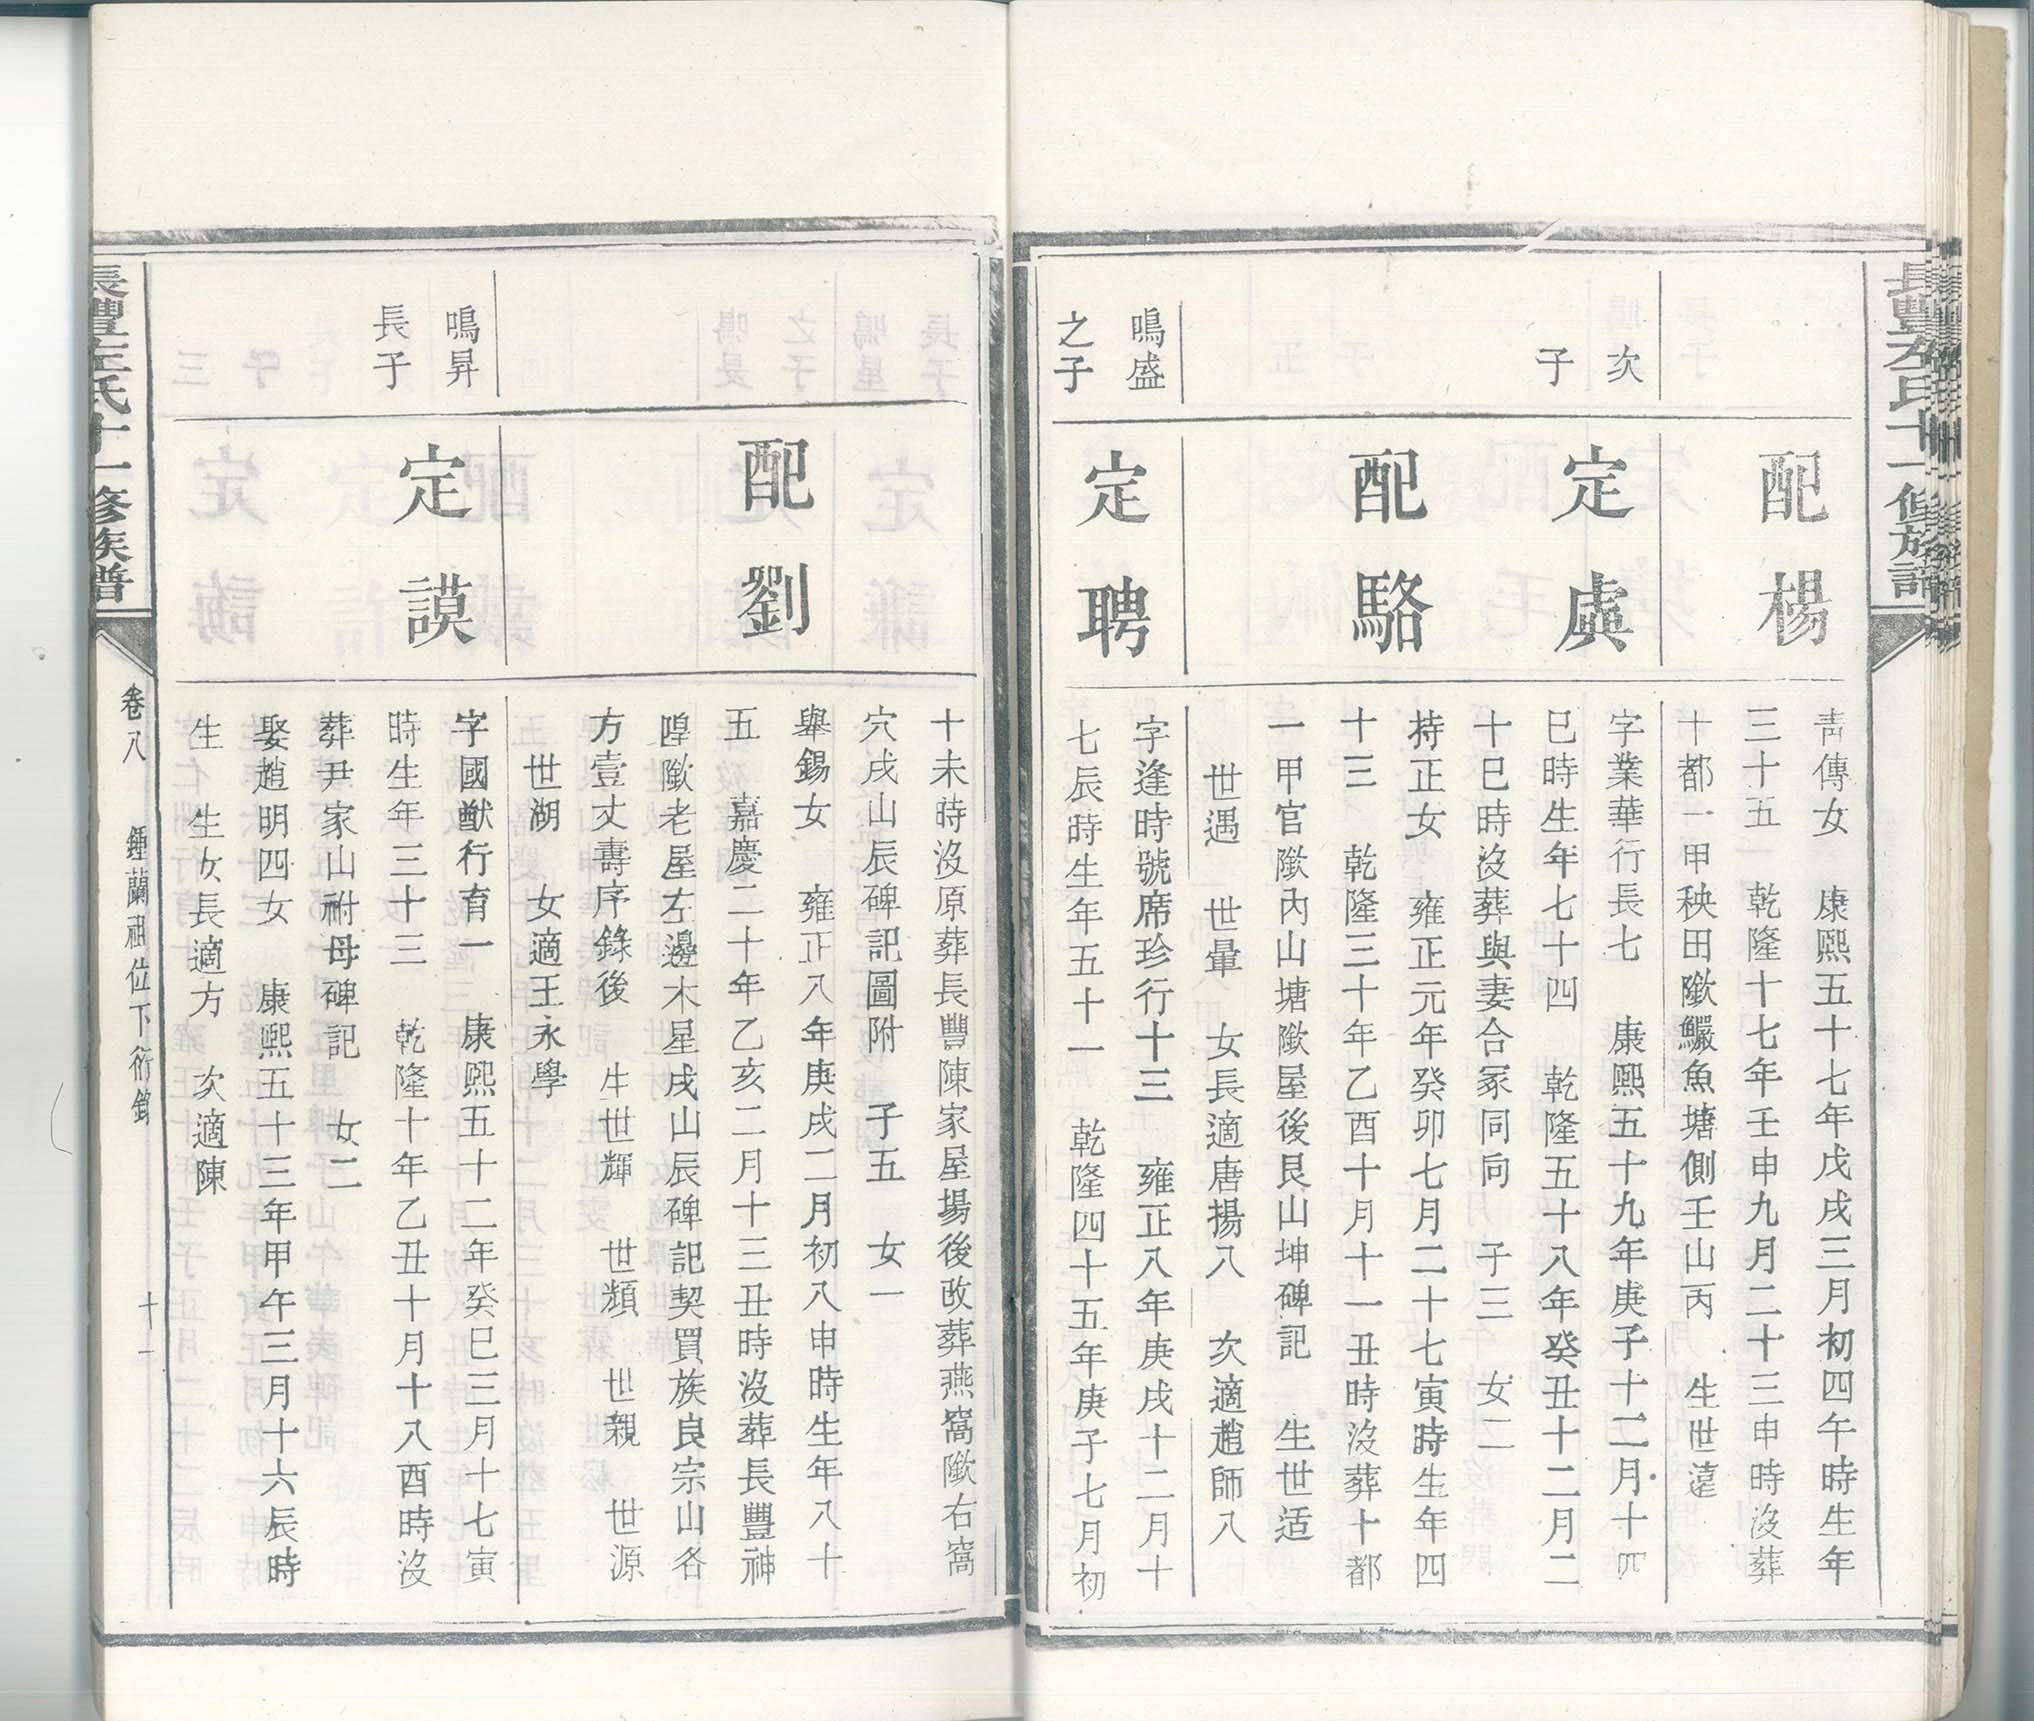 長豐左氏十一修族譜
配楊
青傳女　康熙五十七年戊戌三月初四午時生年
三十五　乾隆十七年壬申九月二十三申時沒葬
十都一甲秧田墩鱺魚塘側壬山丙　生世遠
次
子
定虞
字業華行長七　康熙五十九年庚子十二月十四
巳時生年七十四　乾隆五十八年癸丑十二月二
十巳時沒葬與妻合冢同向　子三　女二
配駱
持正女　雍正元年癸卯七月二十七寅時生年四
十三　乾隆三十年乙酉十月十一丑時沒葬十都
一甲官墩內山塘墩屋後艮山坤碑記　生世适
世遇　世暈　女長適唐揚八　次適趙師八
鳴盛
之子
定聘
字逢時號席珍行十三　雍正八年庚戌十二月十
七辰時生年五十一　乾隆四十五年庚子七月初
十未時沒原葬長豐陳家屋場後改葬燕窩墩右窩
穴戌山辰碑記圖附　子五　女一
配劉
舉錫女　雍正八年庚戌二月初八申時生年八十
五　嘉慶二十年乙亥二月十三丑時沒葬長豐神
隍墩老屋左邊木星戌山辰碑記契買族良宗山各
方壹丈壽序錄後　生世輝　世類　世親　世源
世湖　女適王永學
鳴昇
長子
定謨
字國猷行育一　康熙五十二年癸巳三月十七寅
時生年三十三　乾隆十年乙丑十月十八酉時沒
葬尹家山祔母碑記　女二
娶趙明四女　康熙五十三年甲午三月十六辰時
生　生女長適方　次適陳
長豐左氏十一修族譜
卷八　鍾蘭祖位下衍錄
十一